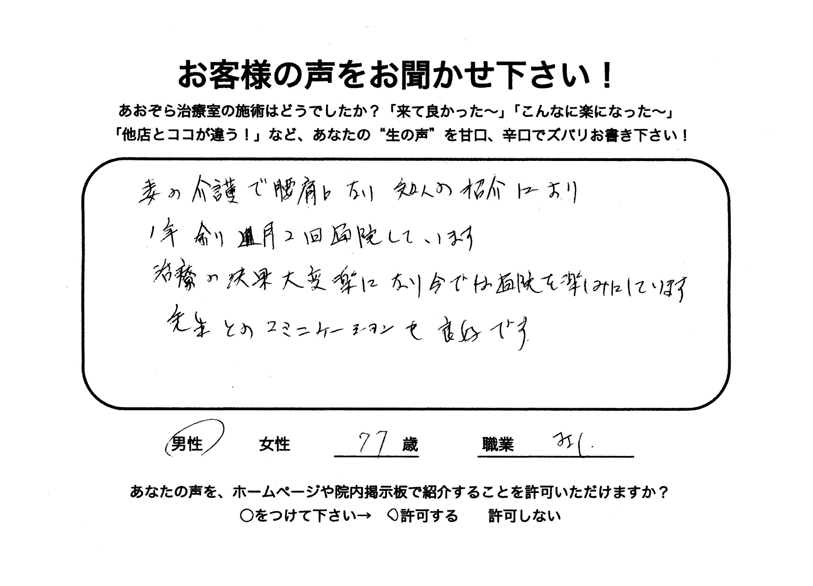 お客様の声をお聞かせ下さい！
あおぞら治療室の施術はどうでしたか？「来て良かった〜」「こんなに楽になった〜」
「他店とココが違う！」など、あなたの“生の声”を甘口、辛口でズバリお書き下さい！
妻の介護で腰痛になり 知人の紹介により
1年余り 月2回通院しています
治療の結果大変楽になり今では通院を楽しみにしています
先生とのコミニケーションも良好です
男性 女性 77歳 職業 なし.
あなたの声を、ホームページや院内掲示板で紹介することを許可いただけますか？
○をつけて下さい→ ○許可する 許可しない